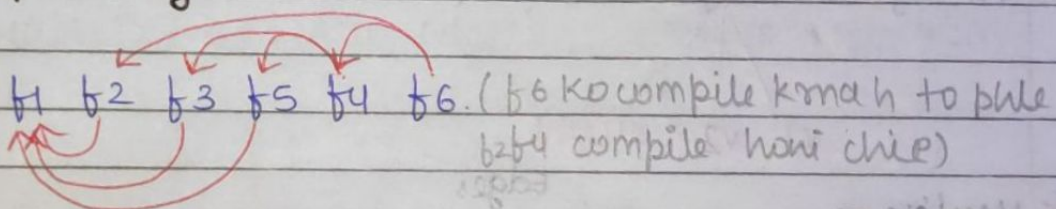 f1 f2 f3 f5 f4 f6. (f6 ko compile krna h to phle
f2 f4 compile honi chie)